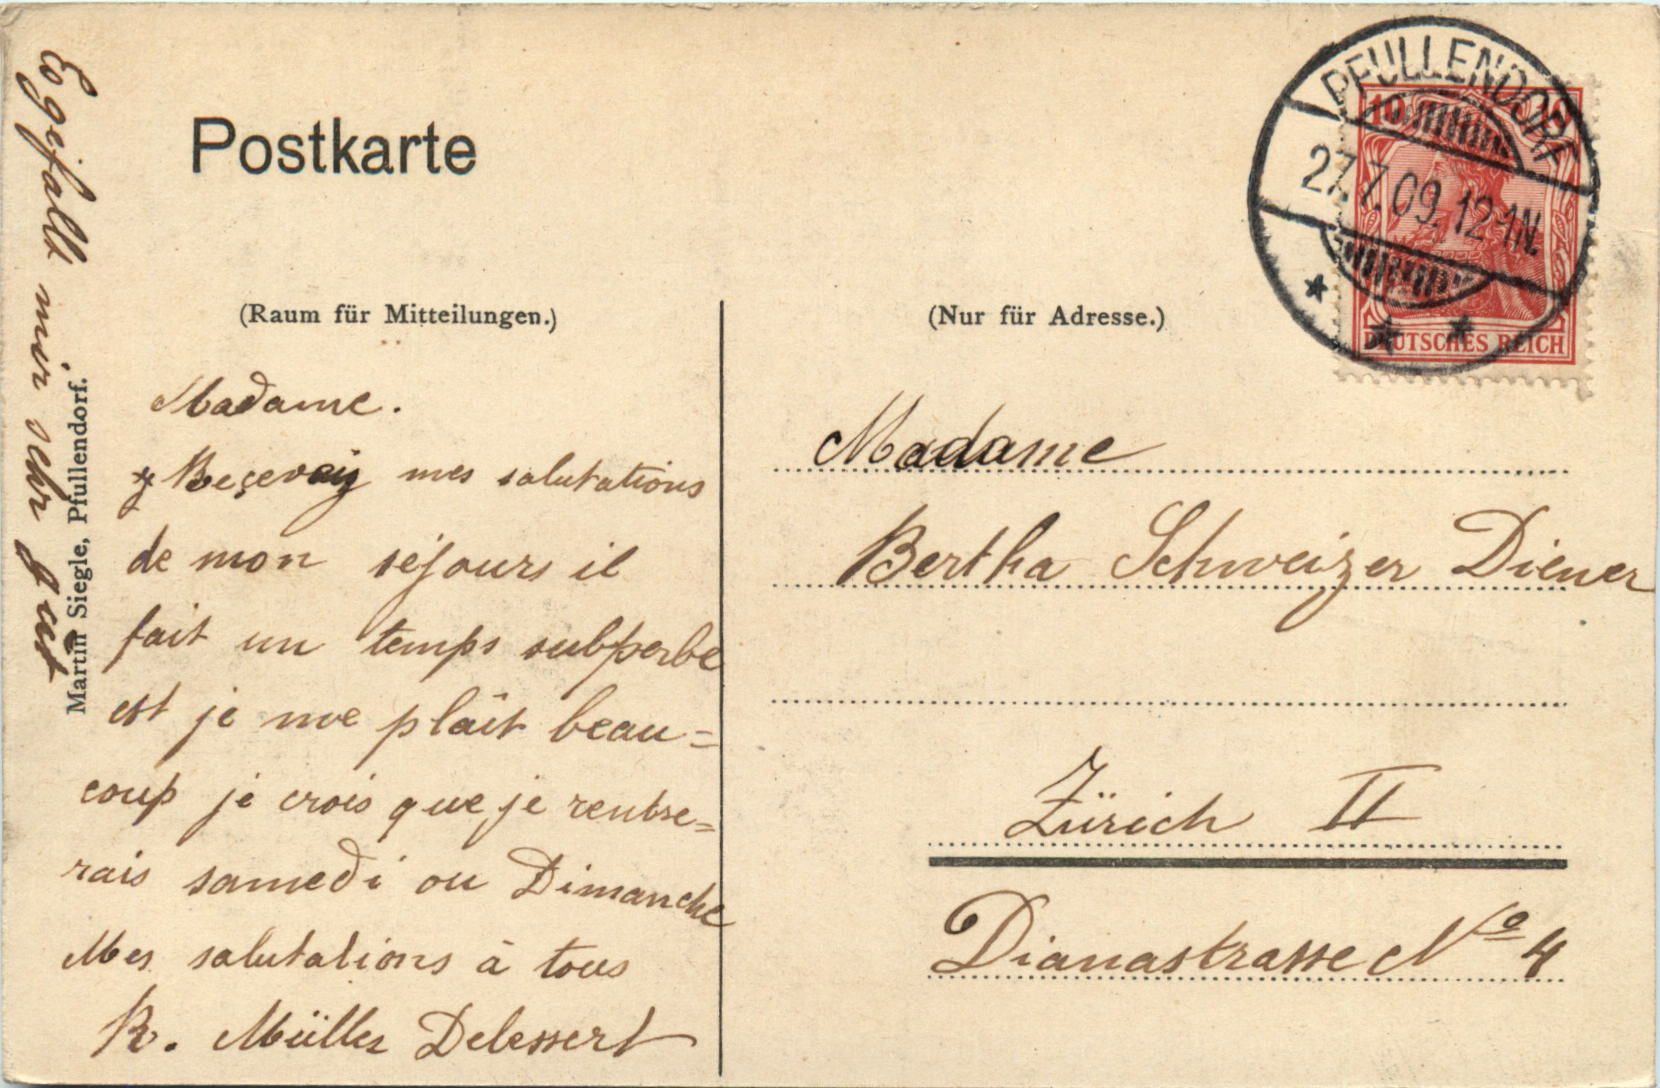 Postkarte
(Raum für Mitteilungen.)
(Nur für Adresse.)
PFULLENDORF
27.7.09. 12-1N.
10 10
DEUTSCHES REICH
Es gefallt mir sehr gut
Martin Siegle, Pfullendorf.
Madame.
Reçevez mes salutations
de mon séjours il
fait un temps subperbe
est je me plaît beau=
coup je crois que je rentre=
rais samedi ou Dimanche
Mes salutations à tous
R. Müller Delessert
Madame
Bertha Schweizer Diener
Zürich II
Dianastrasse No 4